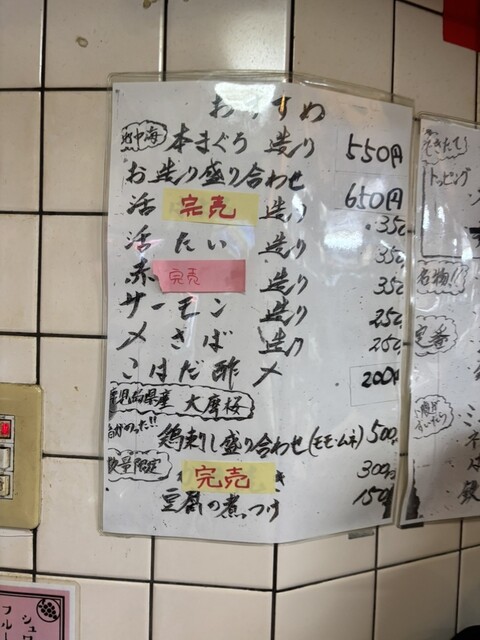 おすすめ
地中海 本まぐろ 造り 550円
お造り盛り合わせ 650円
活 完売 造り 350
活 たい 造り 350
赤 完売 造り 350
サーモン 造り 250
〆さば 造り 250
こはだ酢〆 200円
鹿児島県産 大摩桜
鶏刺し盛り合わせ(モモ・ムネ) 500
数量限定 完売 300円
豆腐の煮つけ 150
できたて
トッピング
名物!!
定番
シュワ
フルー